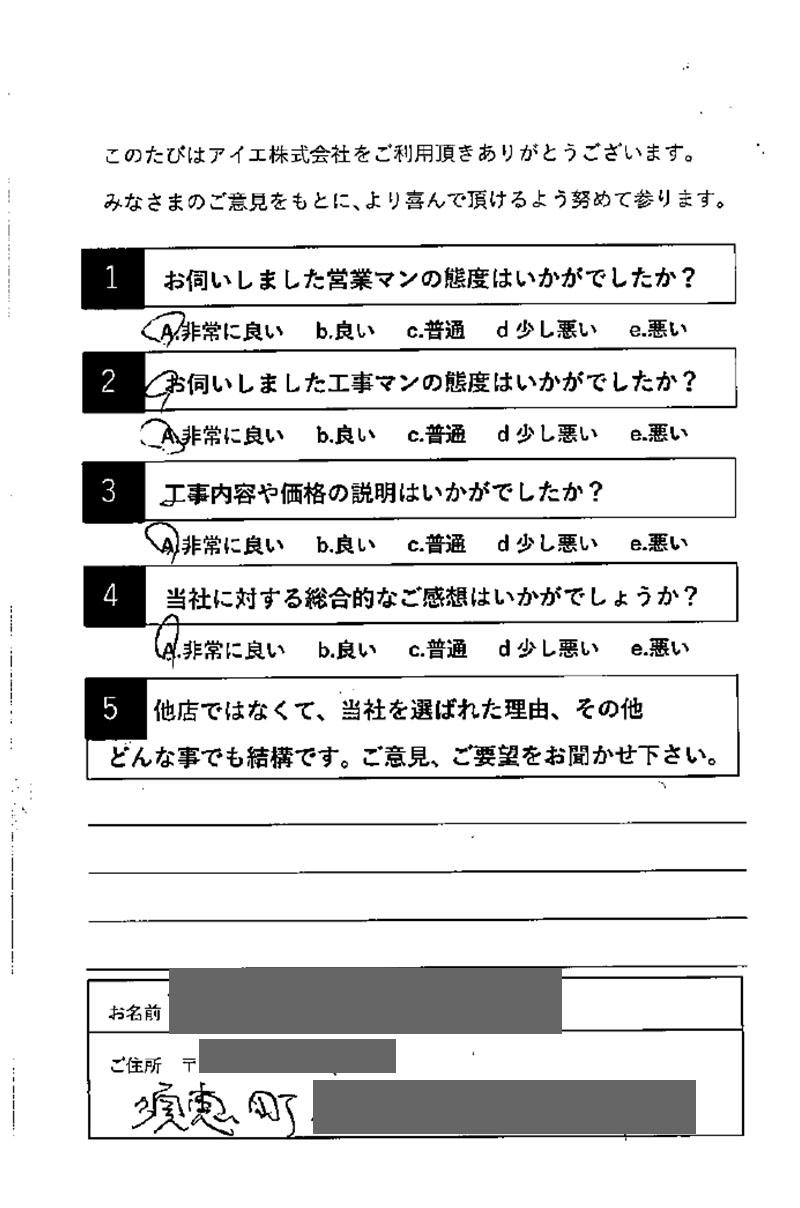 このたびはアイエ株式会社をご利用頂きありがとうございます。
みなさまのご意見をもとに、より喜んで頂けるよう努めて参ります。
1 お伺いしました営業マンの態度はいかがでしたか？
A.非常に良い b.良い c.普通 d 少し悪い e.悪い
2 お伺いしました工事マンの態度はいかがでしたか？
A.非常に良い b.良い c.普通 d 少し悪い e.悪い
3 工事内容や価格の説明はいかがでしたか？
A.非常に良い b.良い c.普通 d 少し悪い e.悪い
4 当社に対する総合的なご感想はいかがでしょうか？
A.非常に良い b.良い c.普通 d 少し悪い e.悪い
5 他店ではなくて、当社を選ばれた理由、その他
どんな事でも結構です。ご意見、ご要望をお聞かせ下さい。
お名前
ご住所 〒
須恵町